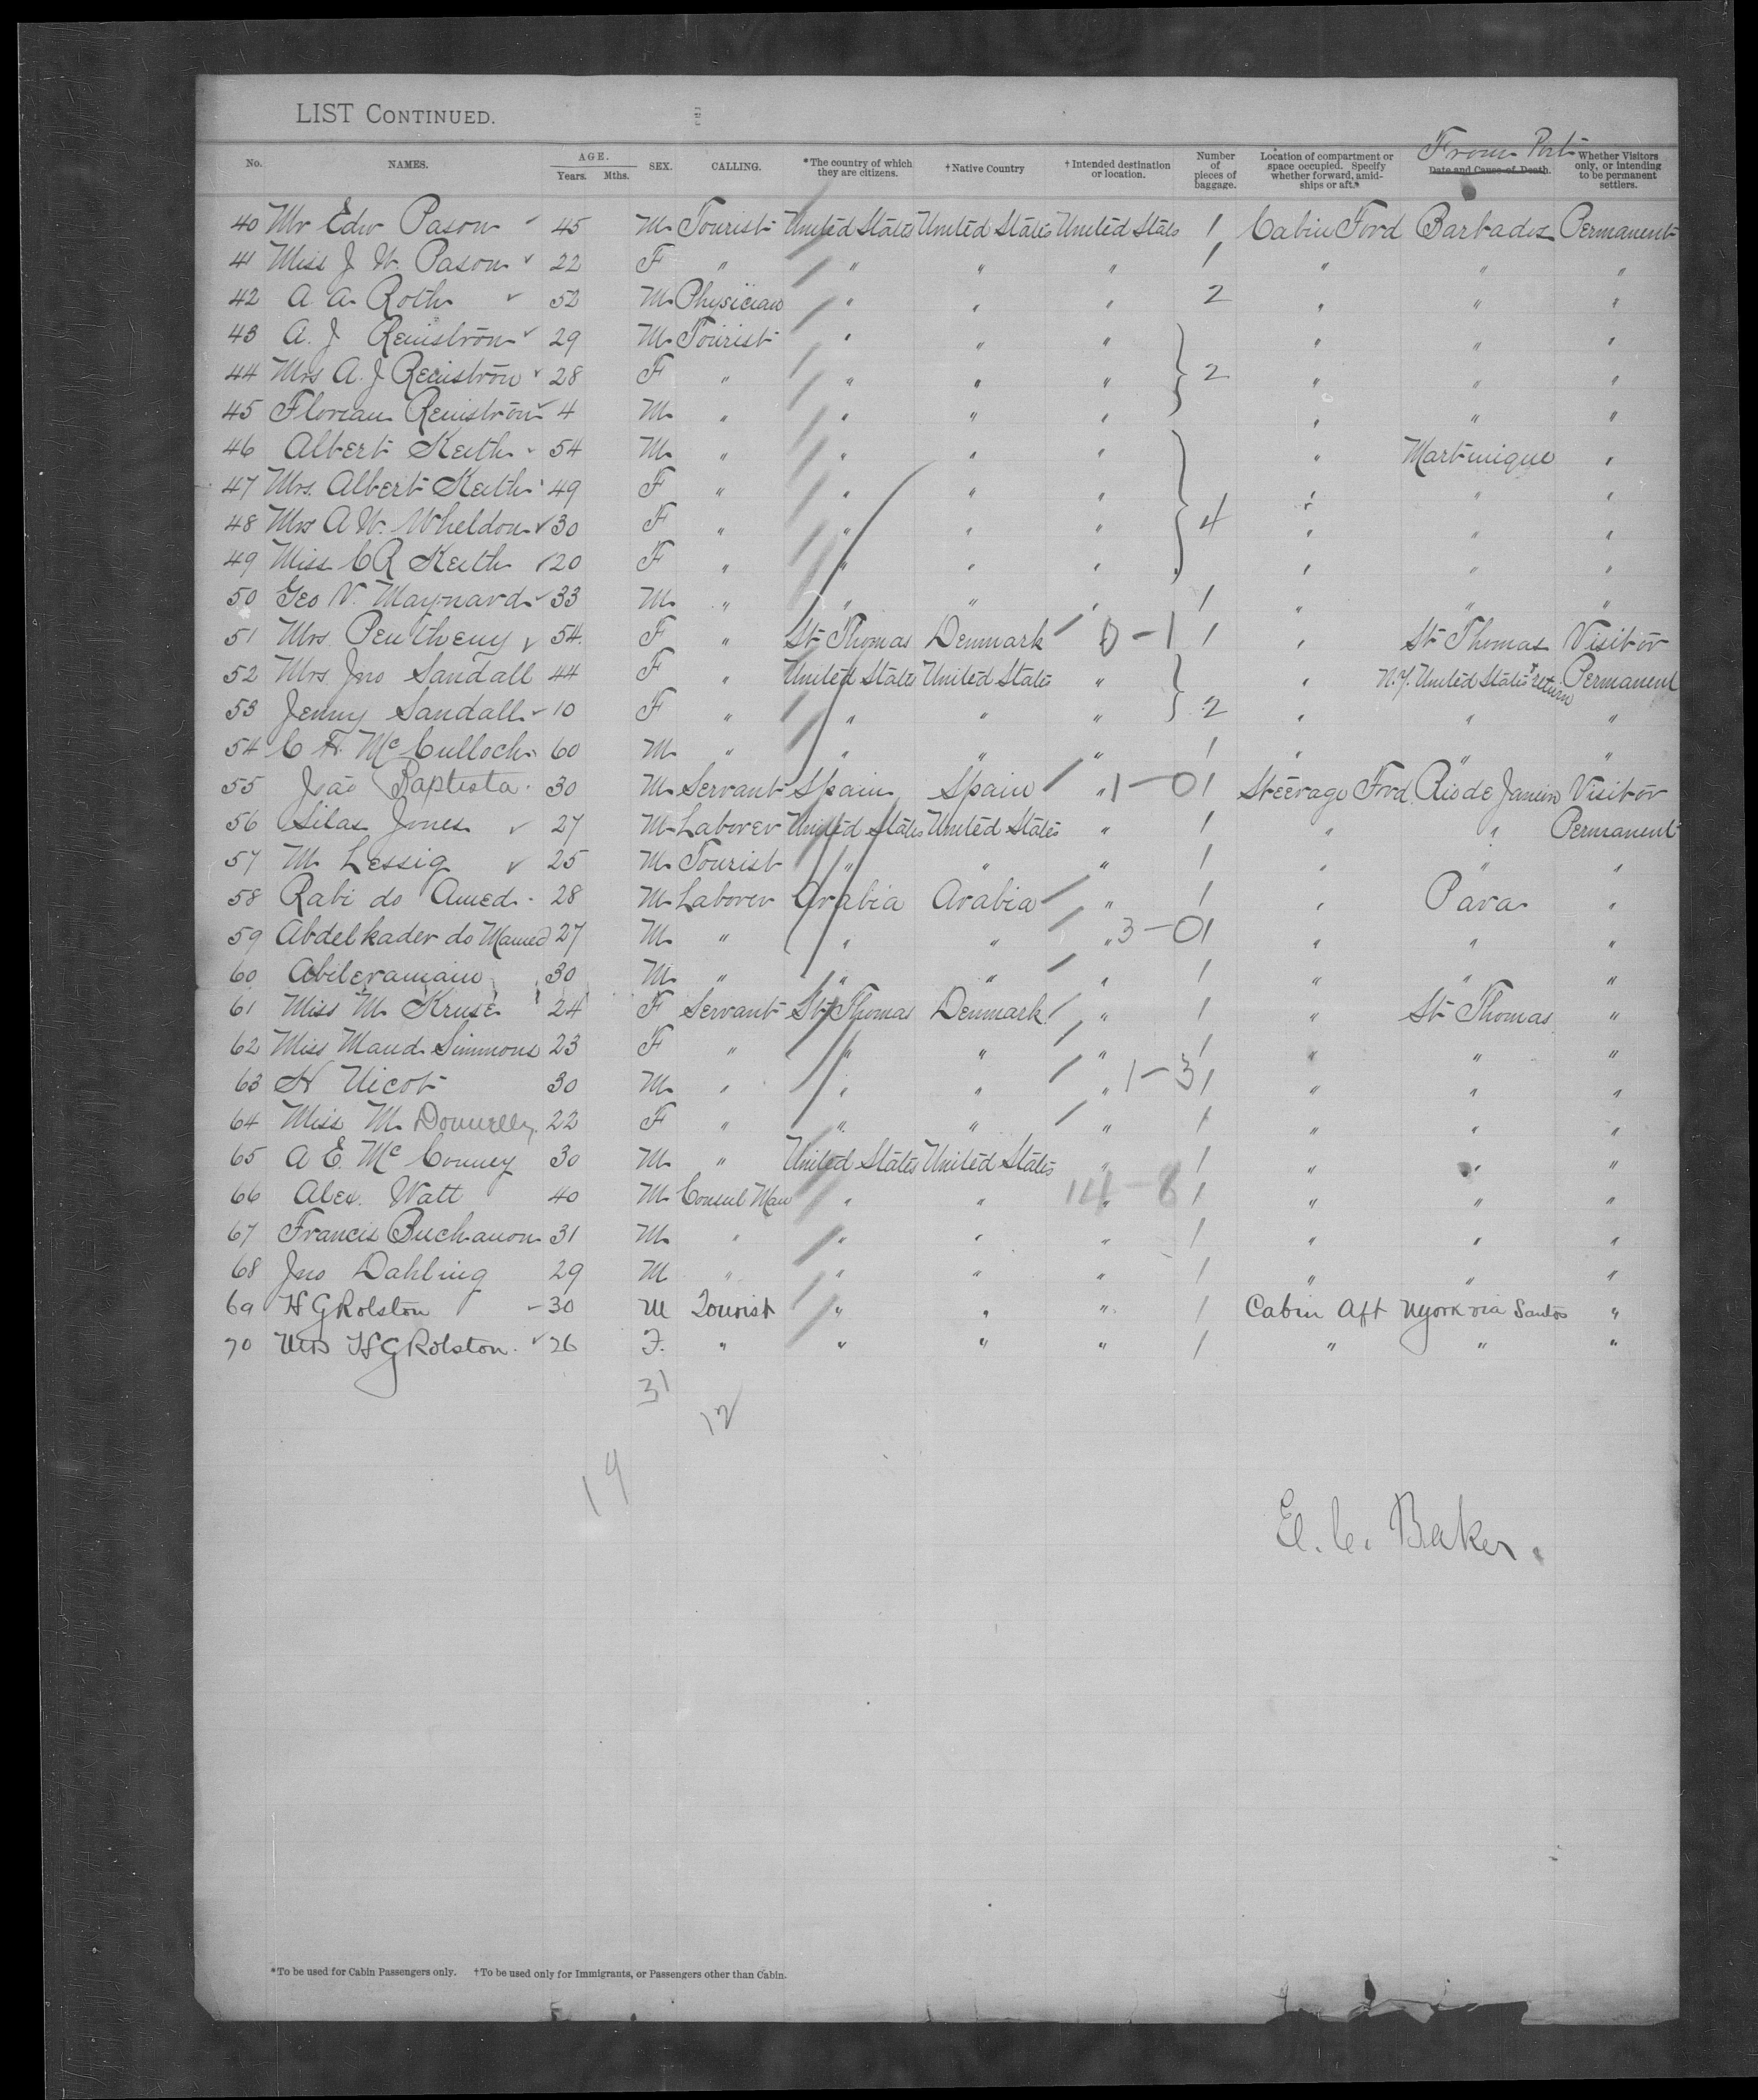 LIST CONTINUED.
From Port
No. NAMES. AGE. Years. Mths. SEX. CALLING. *The country of which they are citizens. †Native Country †Intended destination or location. Number of pieces of baggage. Location of compartment or space occupied. Specify whether forward, amidships or aft. Date and Cause of Death. Whether Visitors only, or intending to be permanent settlers.
40 Mr Edw Pason 45 M Tourist United States United States United States 1 Cabin Ford Barbados Permanent
41 Miss J W. Pason 22 F " " " " 1 " " "
42 A. A. Roth 52 M Physician " " " 2 " " "
43 A. J Reinstrom 29 M Tourist " " " " " "
44 Mrs A. J Reinstrom 28 F " " " " 2 " " "
45 Florian Reinstrom 4 M " " " " " " "
46 Albert Keith 54 M " " " " " Martinique "
47 Mrs. Albert Keith 49 F " " " " " " "
48 Mrs A W. Wheldon 30 F " " " " 4 " " "
49 Miss C R Keith 20 F " " " " " " "
50 Geo V. Maynard 33 M " " " " 1 " " "
51 Mrs Pentheny 54 F " St Thomas Denmark 0-1 1 " St Thomas Visitor
52 Mrs. Jno Sandall 44 F " United States United States " " N.Y. United States & return Permanent
53 Jenny Sandall 10 F " " " " 2 " " "
54 C H. McCulloch 60 M " " " " 1 " " "
55 João Baptista 30 M Servant Spain Spain " 1-0 1 Steerage Ford Rio de Janeiro Visitor
56 Silas Jones 27 M Laborer United States United States " 1 " " Permanent
57 M Lessig 25 M Tourist " " " 1 " " "
58 Rabi do Amed 28 M Laborer Arabia Arabia " 1 " Para "
59 Abdelkader do Mamed 27 M " " " " 3-0 1 " " "
60 Abileramain 30 M " " " " 1 " " "
61 Miss M Kruse 24 F Servant St Thomas Denmark " 1 " St Thomas "
62 Miss Maud Simmons 23 F " " " " 1 " " "
63 H Nicot 30 M " " " " 1-3 1 " " "
64 Miss M Donnelly 22 F " " " " 1 " " "
65 A E. McConney 30 M " United States United States " 1 " " "
66 Alex. Watt 40 M Consul Man " " " 14-8 1 " " "
67 Francis Buchanon 31 M " " " " 1 " " "
68 Jno Dahling 29 M " " " " 1 " " "
69 H G Rolston 30 M Tourist " " " 1 Cabin Aft NYork via Santos "
70 Mrs H G Rolston. 26 F. " " " " 1 " " "
31
12
19
E. C. Baker.
*To be used for Cabin Passengers only. †To be used only for Immigrants, or Passengers other than Cabin.